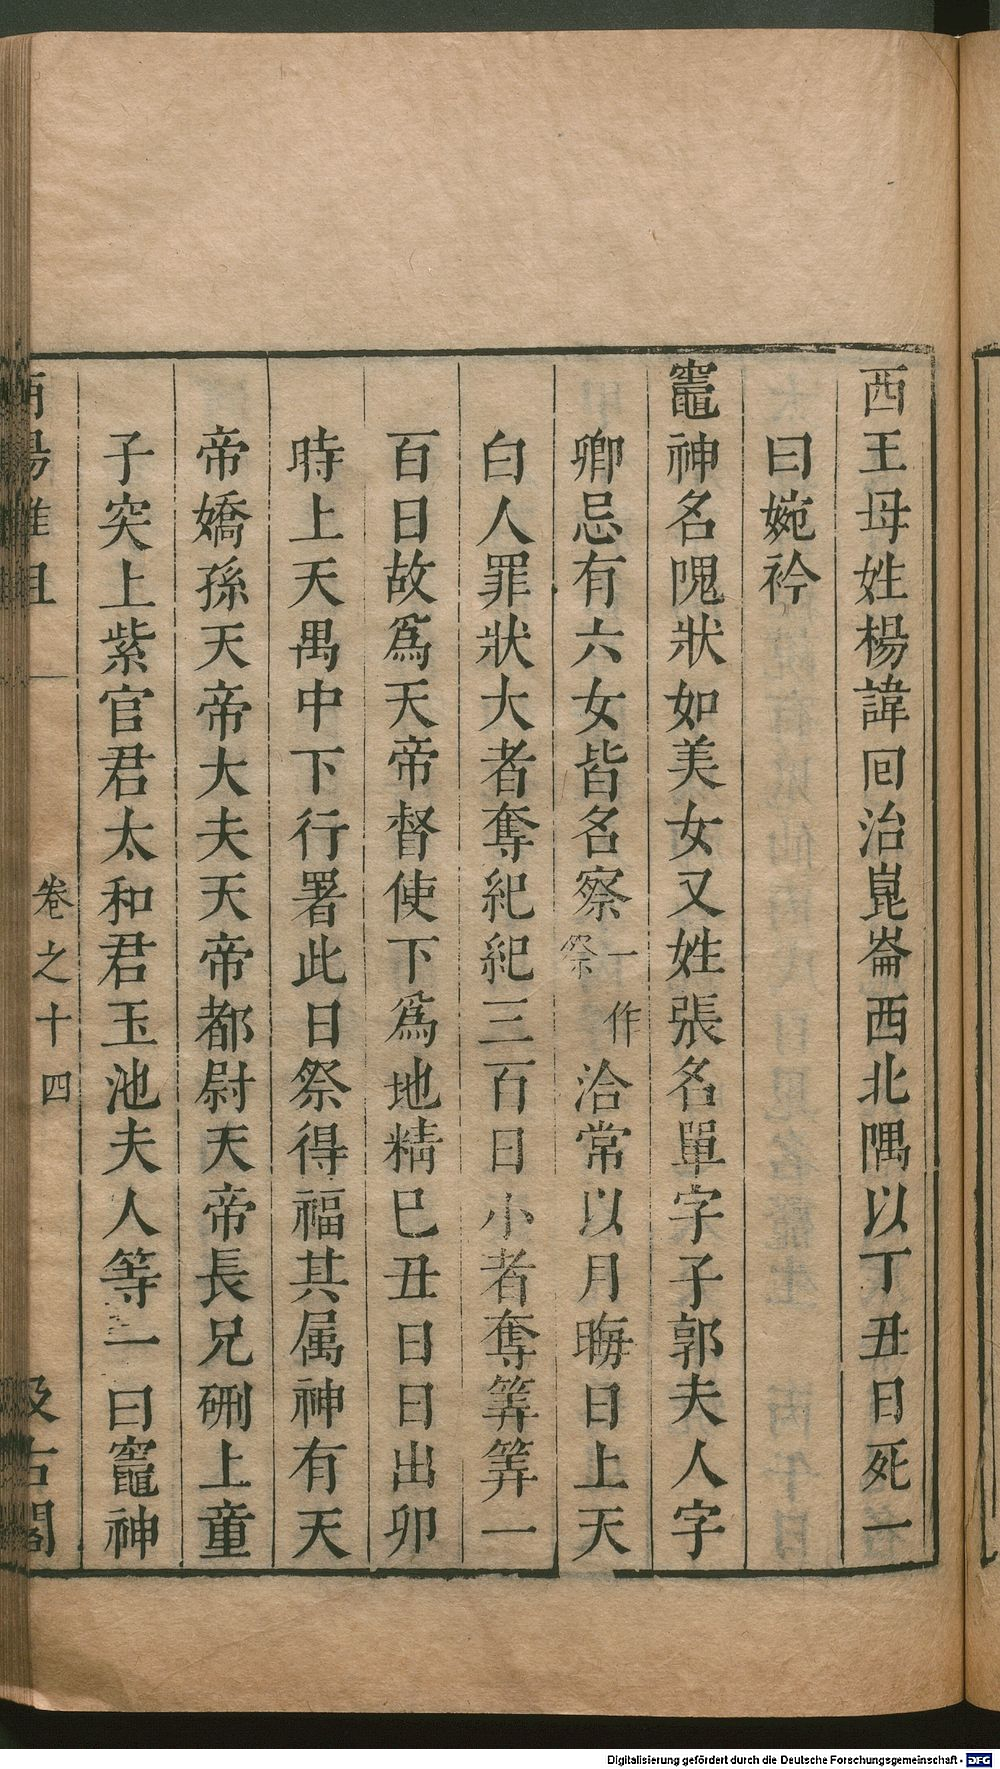 西王母姓楊諱囘治崑崙西北隅以丁丑日死一
曰婉衿
竈神名隗狀如美女又姓張名單字子郭夫人字
卿忌有六女皆名察一作祭洽常以月晦日上天
白人罪狀大者奪紀紀三百日小者奪筭筭一
百日故爲天帝督使下爲地精巳丑日日出卯
時上天禺中下行署此日祭得福其属神有天
帝嬌孫天帝大夫天帝都尉天帝長兄硎上童
子突上紫官君太和君玉池夫人等一曰竈神
酉陽雜俎 卷之十四 汲古閣
Digitalisierung gefördert durch die Deutsche Forschungsgemeinschaft - DFG